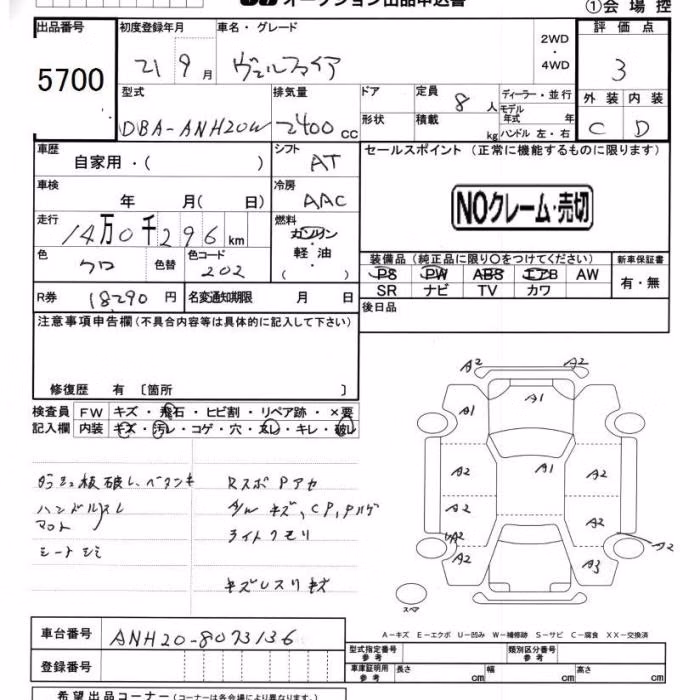 オークション出品申込書
①会場控
出品番号 初度登録年月 車名・グレード 2WD・4WD 評価点
5700 21 9月 ヴェルファイア 3
型式 排気量 ドア 定員 8人 ディーラー・並行 外装 内装
DBA-ANH20W 2400cc 形状 積載 kg モデル年式 年 ハンドル 左・右 C D
車歴 自家用・( ) シフト AT セールスポイント (正常に機能するものに限ります)
車検 年 月( 日) 冷房 AAC NOクレーム・売切
走行 14万0千296km 燃料 ガソリン・軽油・( )
装備品(純正品に限り○をつけてください) 新車保証書
色 クロ 色替 色コード 202 PS PW ABS エアB AW 有・無
SR ナビ TV カワ
R券 18290円 名変通知期限 月 日 後日品
注意事項申告欄(不具合内容等は具体的に記入して下さい)
修復歴 有 〔箇所 〕
検査員 FW キズ・飛石・ヒビ割・リペア跡・×要
記入欄 内装 キズ・汚レ・コゲ・穴・スレ・キレ・破レ
A2 A2
A1 A1
A2 A1 A2
A2 A2
A2 A2 A3
ダッシュ板破レ、ベタツキ RスポPアセ
ハンドルスレ A/W キズ、CP,Pハゲ
マット ライトクモリ
シートシミ
キズレスリキズ
スペア
A-キズ E-エクボ U-凹み W-補修跡 S-サビ C-腐食 XX-交換済
車台番号 ANH20-8073136
型式指定番号 参考 類別区分番号 参考
登録番号 車庫証明用 参考 長さ cm 幅 cm 高さ cm
希望出品コーナー(コーナーは各会場により異なります。)